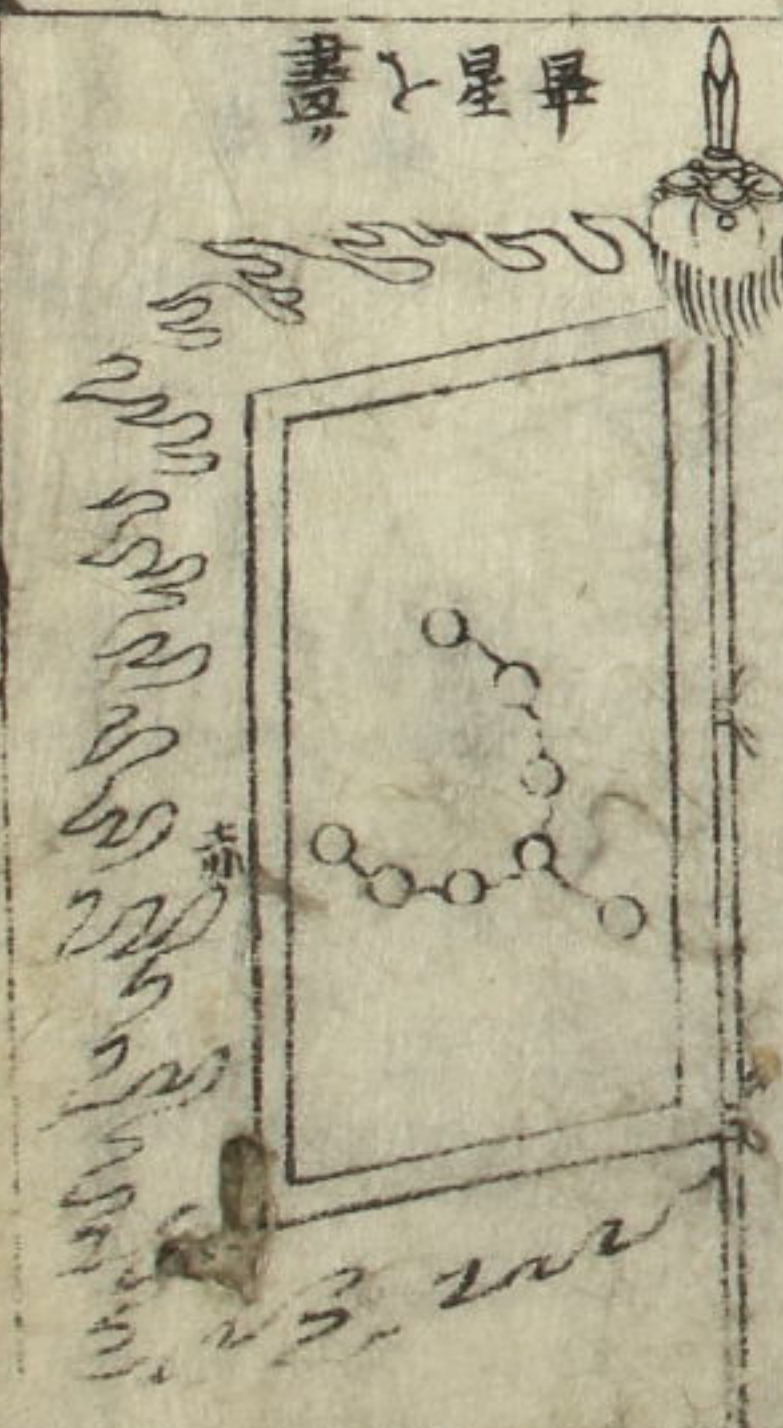 畢星と畫
赤